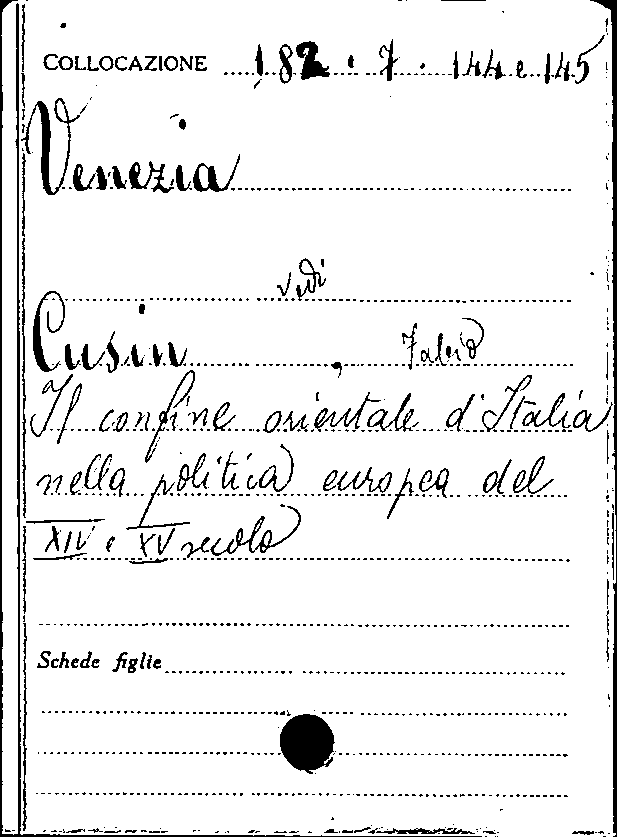 COLLOCAZIONE 182.7.144 e 145
Venezia
vedi
Cusin, Fabio
Il confine orientale d'Italia
nella politica europea del
XIV e XV secolo
Schede figlie